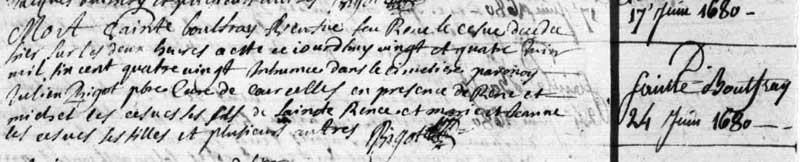 17 Juin 1680
Mort Sainte boulfray veufve feu René le cesne decedee
hier sur les deux heures a este ce jourdhuy vingt et quatre Juin
mil six cent quatre vingt Inhumee dans le cimetiere par nous
Julien Pigot pbre Curé de Courcelles en presence de René et
michel les cesnes les fils de Sainte Renee et marie et Jeanne
les cesnes ses filles et plusieurs autres Pigot
Sainte Boulfray
24 Juin 1680